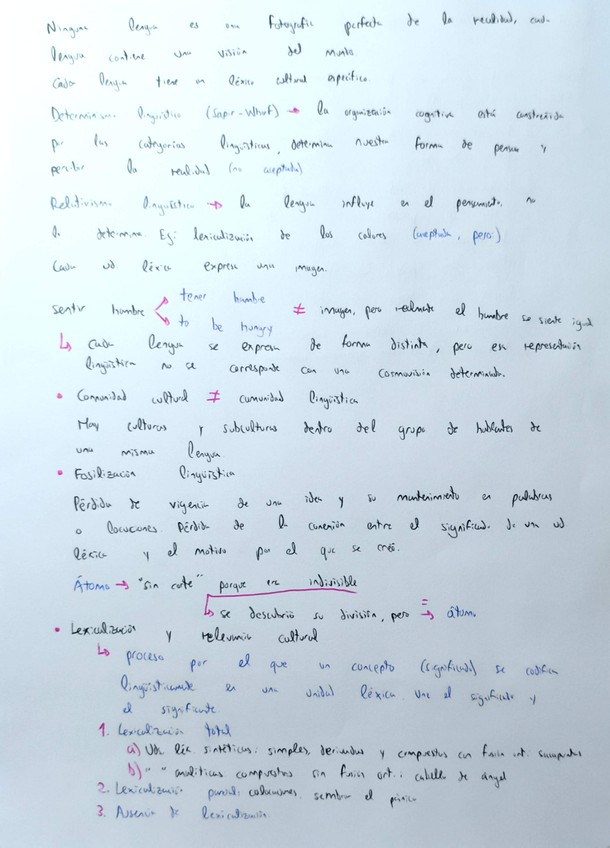 Ninguna lengua es una fotografía perfecta de la realidad, cada
lengua contiene una visión del mundo.
Cada lengua tiene un léxico cultural específico.
Determinismo lingüístico (Sapir-Whorf) → la organización cognitiva está constreñida
por las categorías lingüísticas, determina nuestra forma de pensar y
percibir la realidad (no aceptada)
Relativismo lingüístico → la lengua influye en el pensamiento, no
lo determina. Ej: lexicalización de los colores (aceptada, pero:)
Cada ud léxica expresa una imagen.
sentir hambre < tener hambre
to be hungry
≠ imagen, pero realmente el hambre se siente igual
↳ Cada lengua se expresa de forma distinta, pero esa representación
lingüística no se corresponde con una cosmovisión determinada.
• Comunidad cultural ≠ comunidad lingüística
Hay culturas y subculturas dentro del grupo de hablantes de
una misma lengua
• Fosilización lingüística
Pérdida de vigencia de una idea y su mantenimiento en palabras
o locuciones. Pérdida de la conexión entre el significado de una ud
léxica y el motivo por el que se creó.
Átomo → "sin corte" porque era indivisible
↳ se descubrió su división, pero = → átomo
• Lexicalización y relevancia cultural
↳ proceso por el que un concepto (significado) se codifica
lingüísticamente en una unidad léxica. Une el significado y
el significante
1. Lexicalización total
a) Uds léx. sintéticas: simples, derivados y compuestos con
b) " " analíticas compuestos sin : cabello de ángel
2. Lexicalización parcial: colocaciones. sembrar el pánico
3. Ausencia de lexicalización.